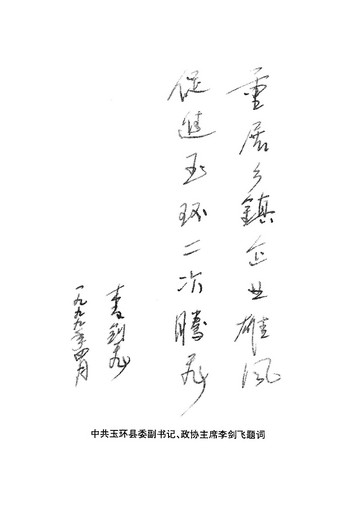 重展乡鎮企业雄风
促進玉环二次腾飛
李剑飛
一九九九年四月
中共玉环县委副书记、政协主席李剑飞题词